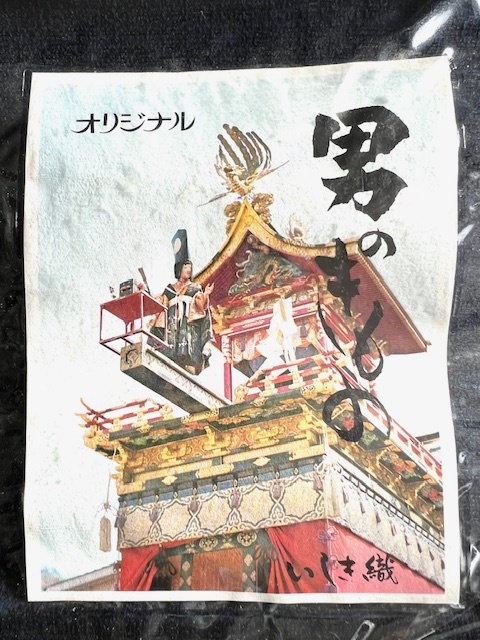 オリジナル
男のきもの
いしき織